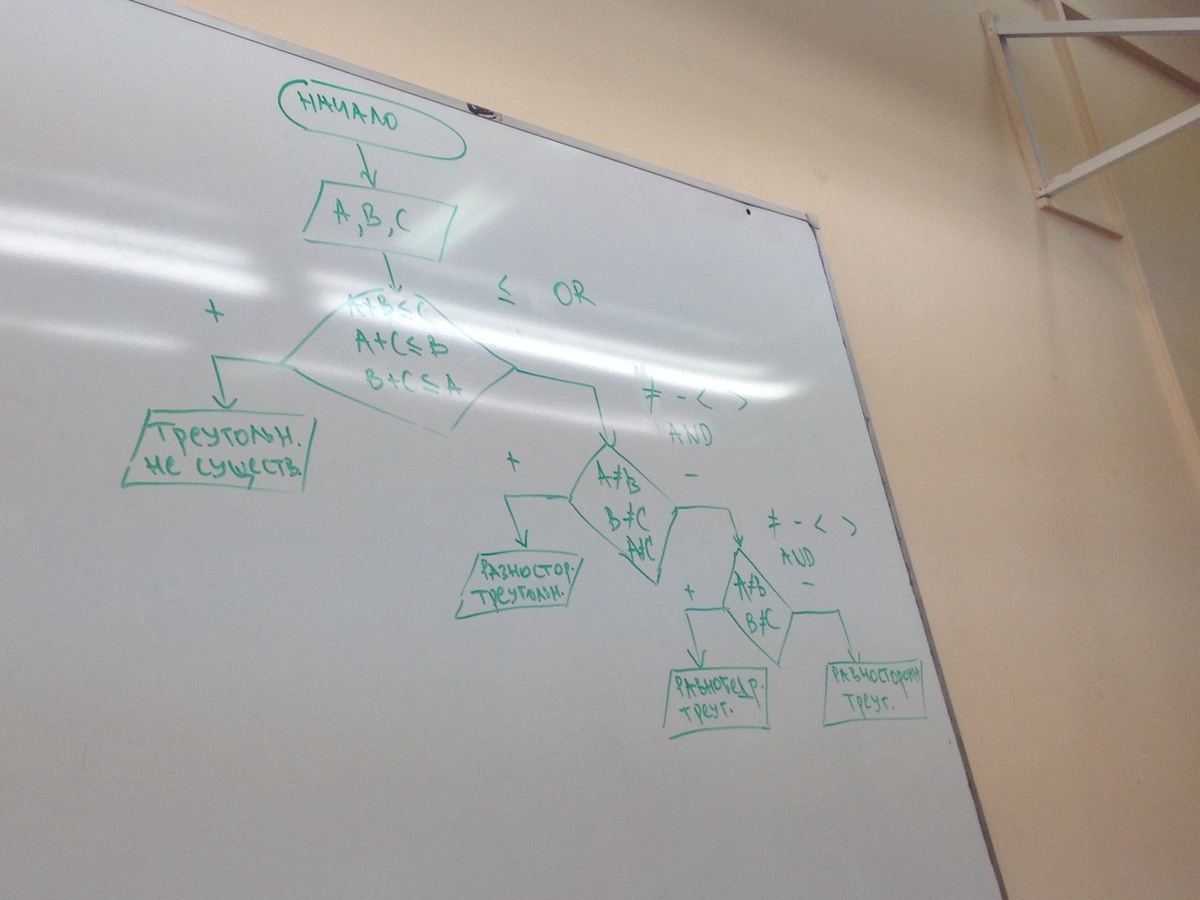 НАЧАЛО
A, B, C
≤ OR
+
A+B≤C
A+C≤B
B+C≤A
ТРЕУГОЛЬН.
НЕ СУЩЕСТВ.
≠ - < >
AND
+
-
A≠B
B≠C
A≠C
РАЗНОСТОР.
ТРЕУГОЛЬН.
≠ - < >
AND
+
-
A≠B
B≠C
РАВНОБЕДР.
ТРЕУГ.
РАВНОСТОРОНН
ТРЕУГ.